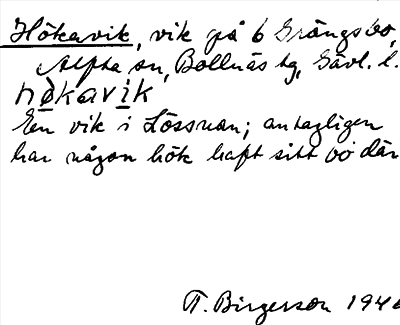 Hökavik, vik på 6 Grängsbo,
Alfta sn, Bollnäs tg, Gävl. l.
hø̀kavi̲k
En vik i Lössnan; antagligen
har någon hök haft sitt bo där
T. Birgerson 194